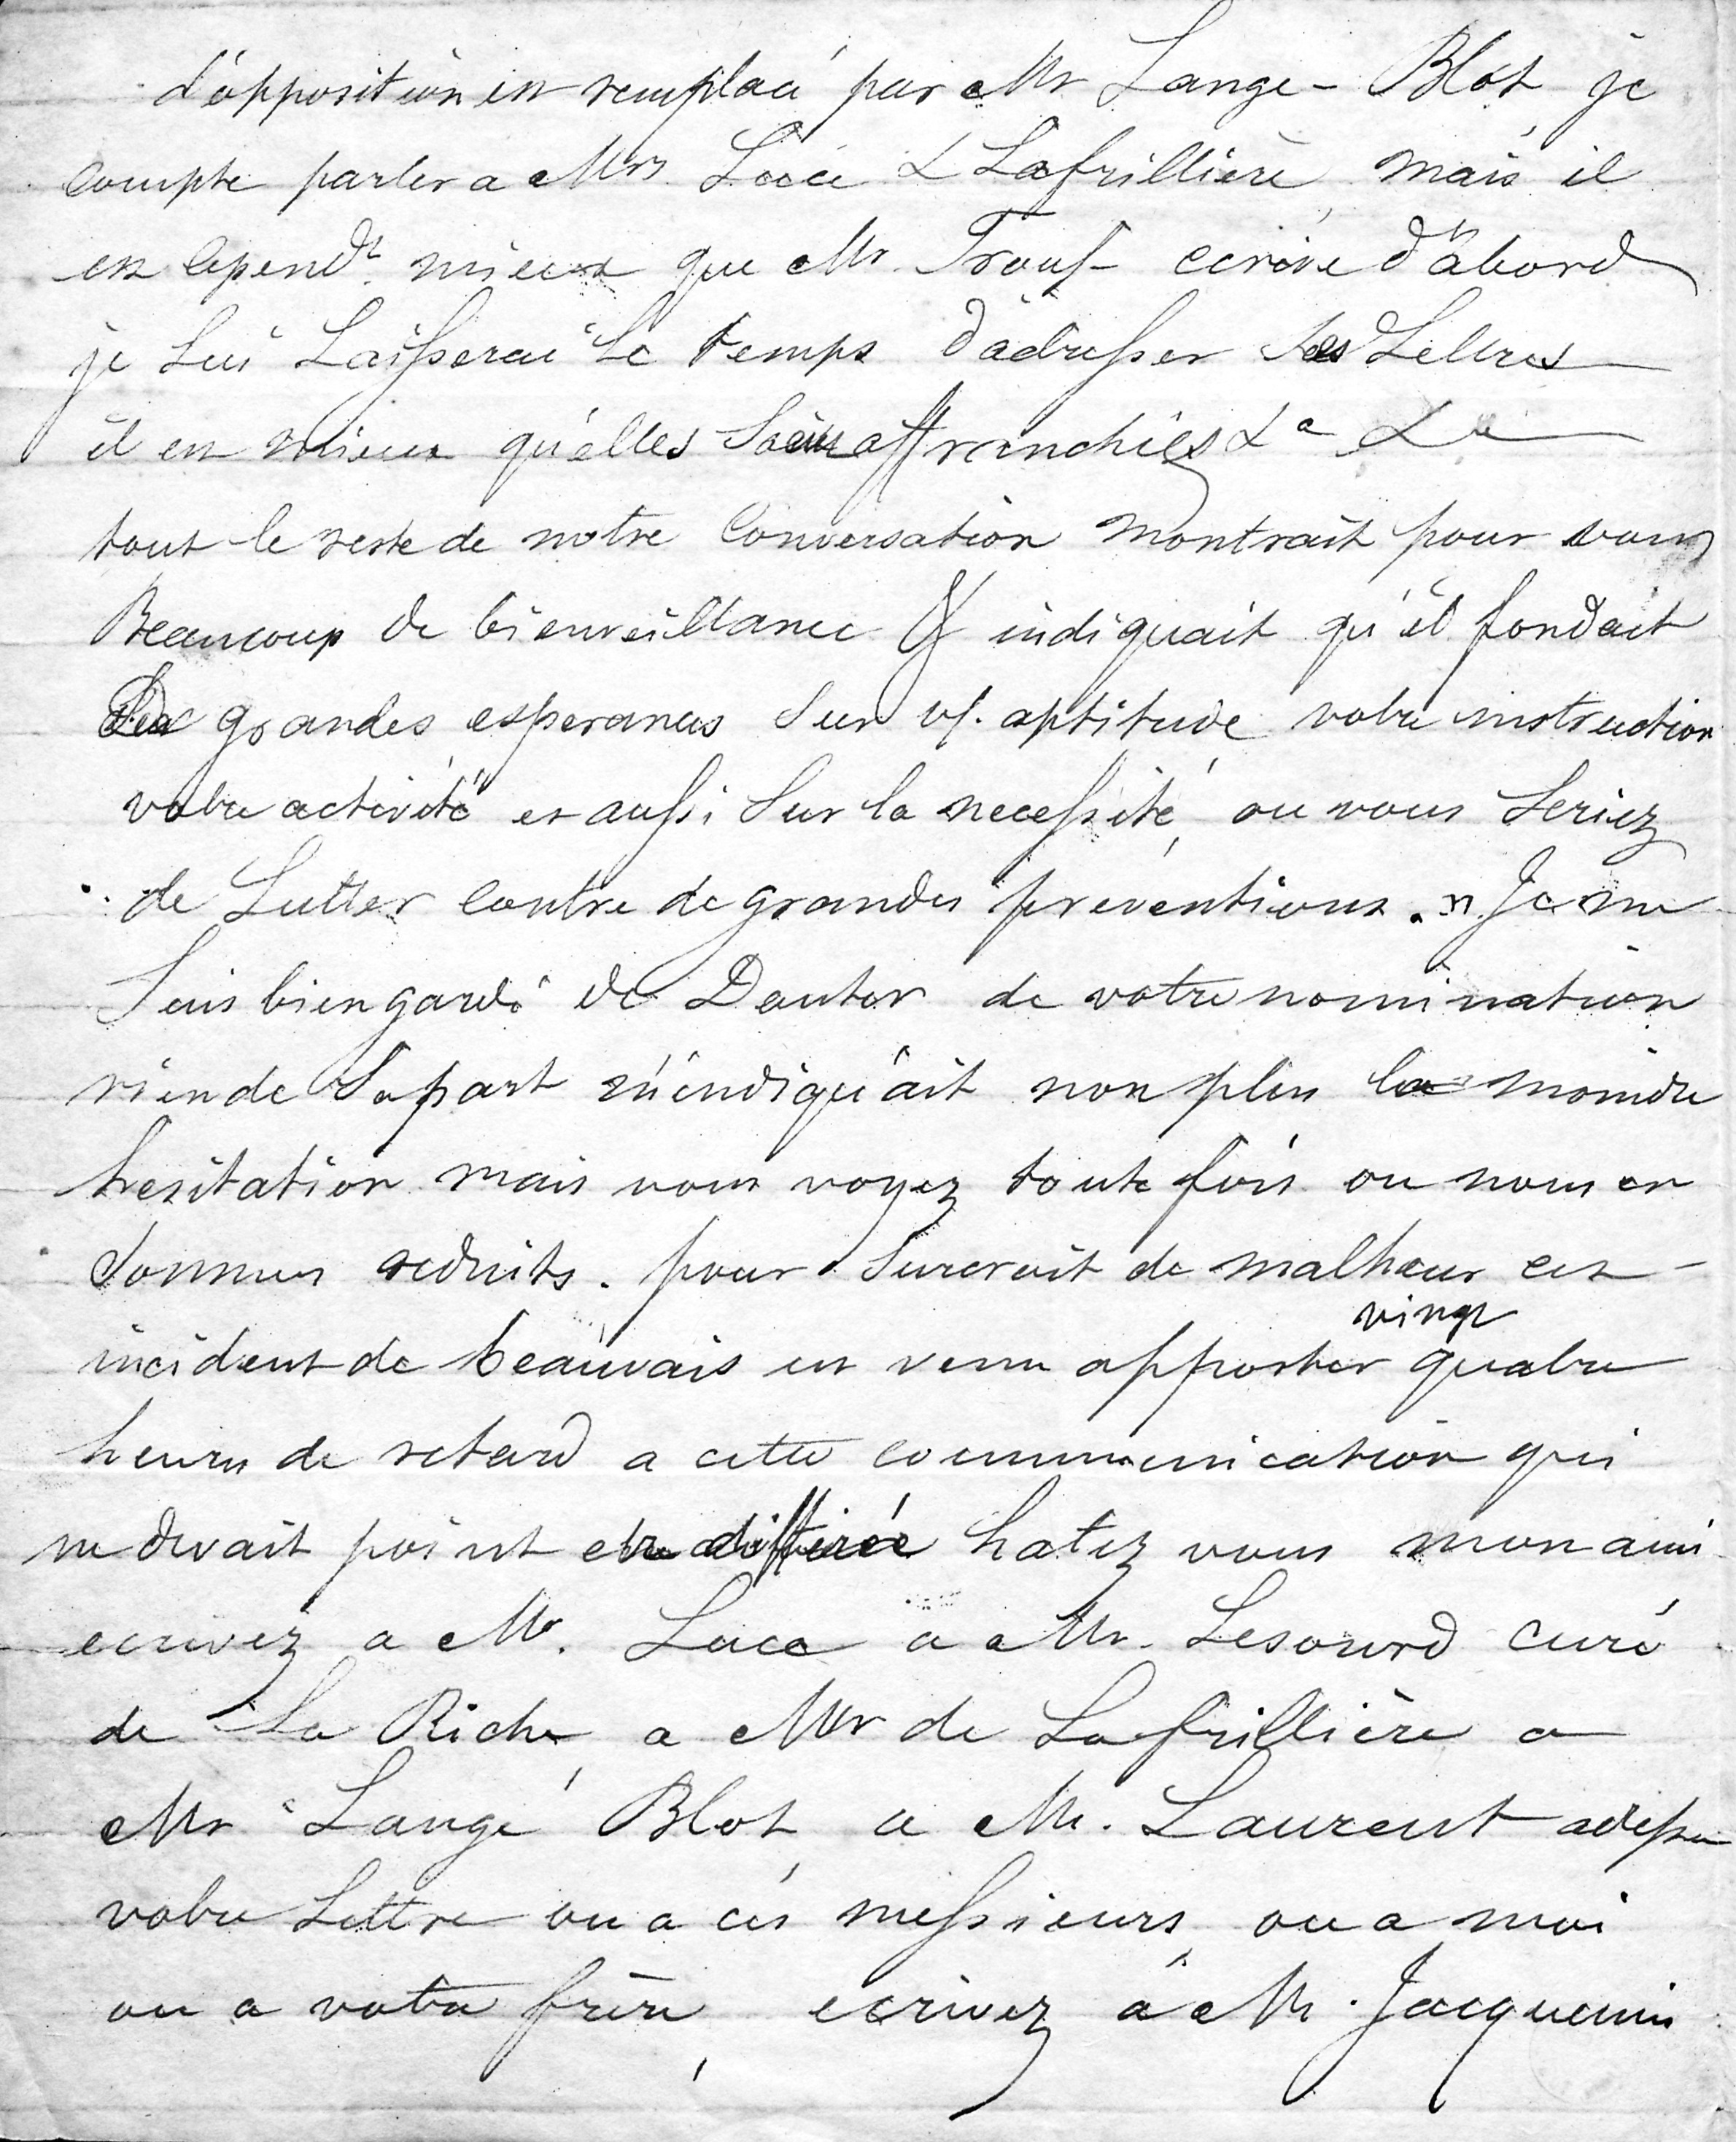 d'opposition est remplacé par Mr Lange-Blot je
compte parler a Mrs Luce & Lafrillière, mais il
est cepend.t mieux que Mr. Trouss ecrive d'abord
je lui laisserai le temps d'adresser ses Lettres
il est mieux qu'elles soient affranchies &a &a
tout le reste de notre Conversation montrait pour vous
Beaucoup de bienveillance & indiquait qu'il fondait
Des grandes esperances sur vf. aptitude votre instruction
votre activité et aussi sur la necessité ou vous seriez
de Lutter contre de grandes préventions. Je me
Suis bien gardé de Douter de votre nomination
rien de Sa part n'indiquait non plus la moindre
hesitation mais vous voyez toute fois ou nous en
sommes reduits. pour Surcroit de malheur cet
vingt
incident de beauvais est venu apporter quatre
heures de retard a cette communication qui
ne devait point etre différée hatez vous mon ami
ecrivez a Mr. Luce a Mr. Lesourd curé
de La Riche, a Mr de Lafrillière a
Mr Lange Blot a Mr. Laurent adressez
votre Lettre ou a ces messieurs ou a moi
ou a votre frère, ecrivez a Mr. Jacquemin